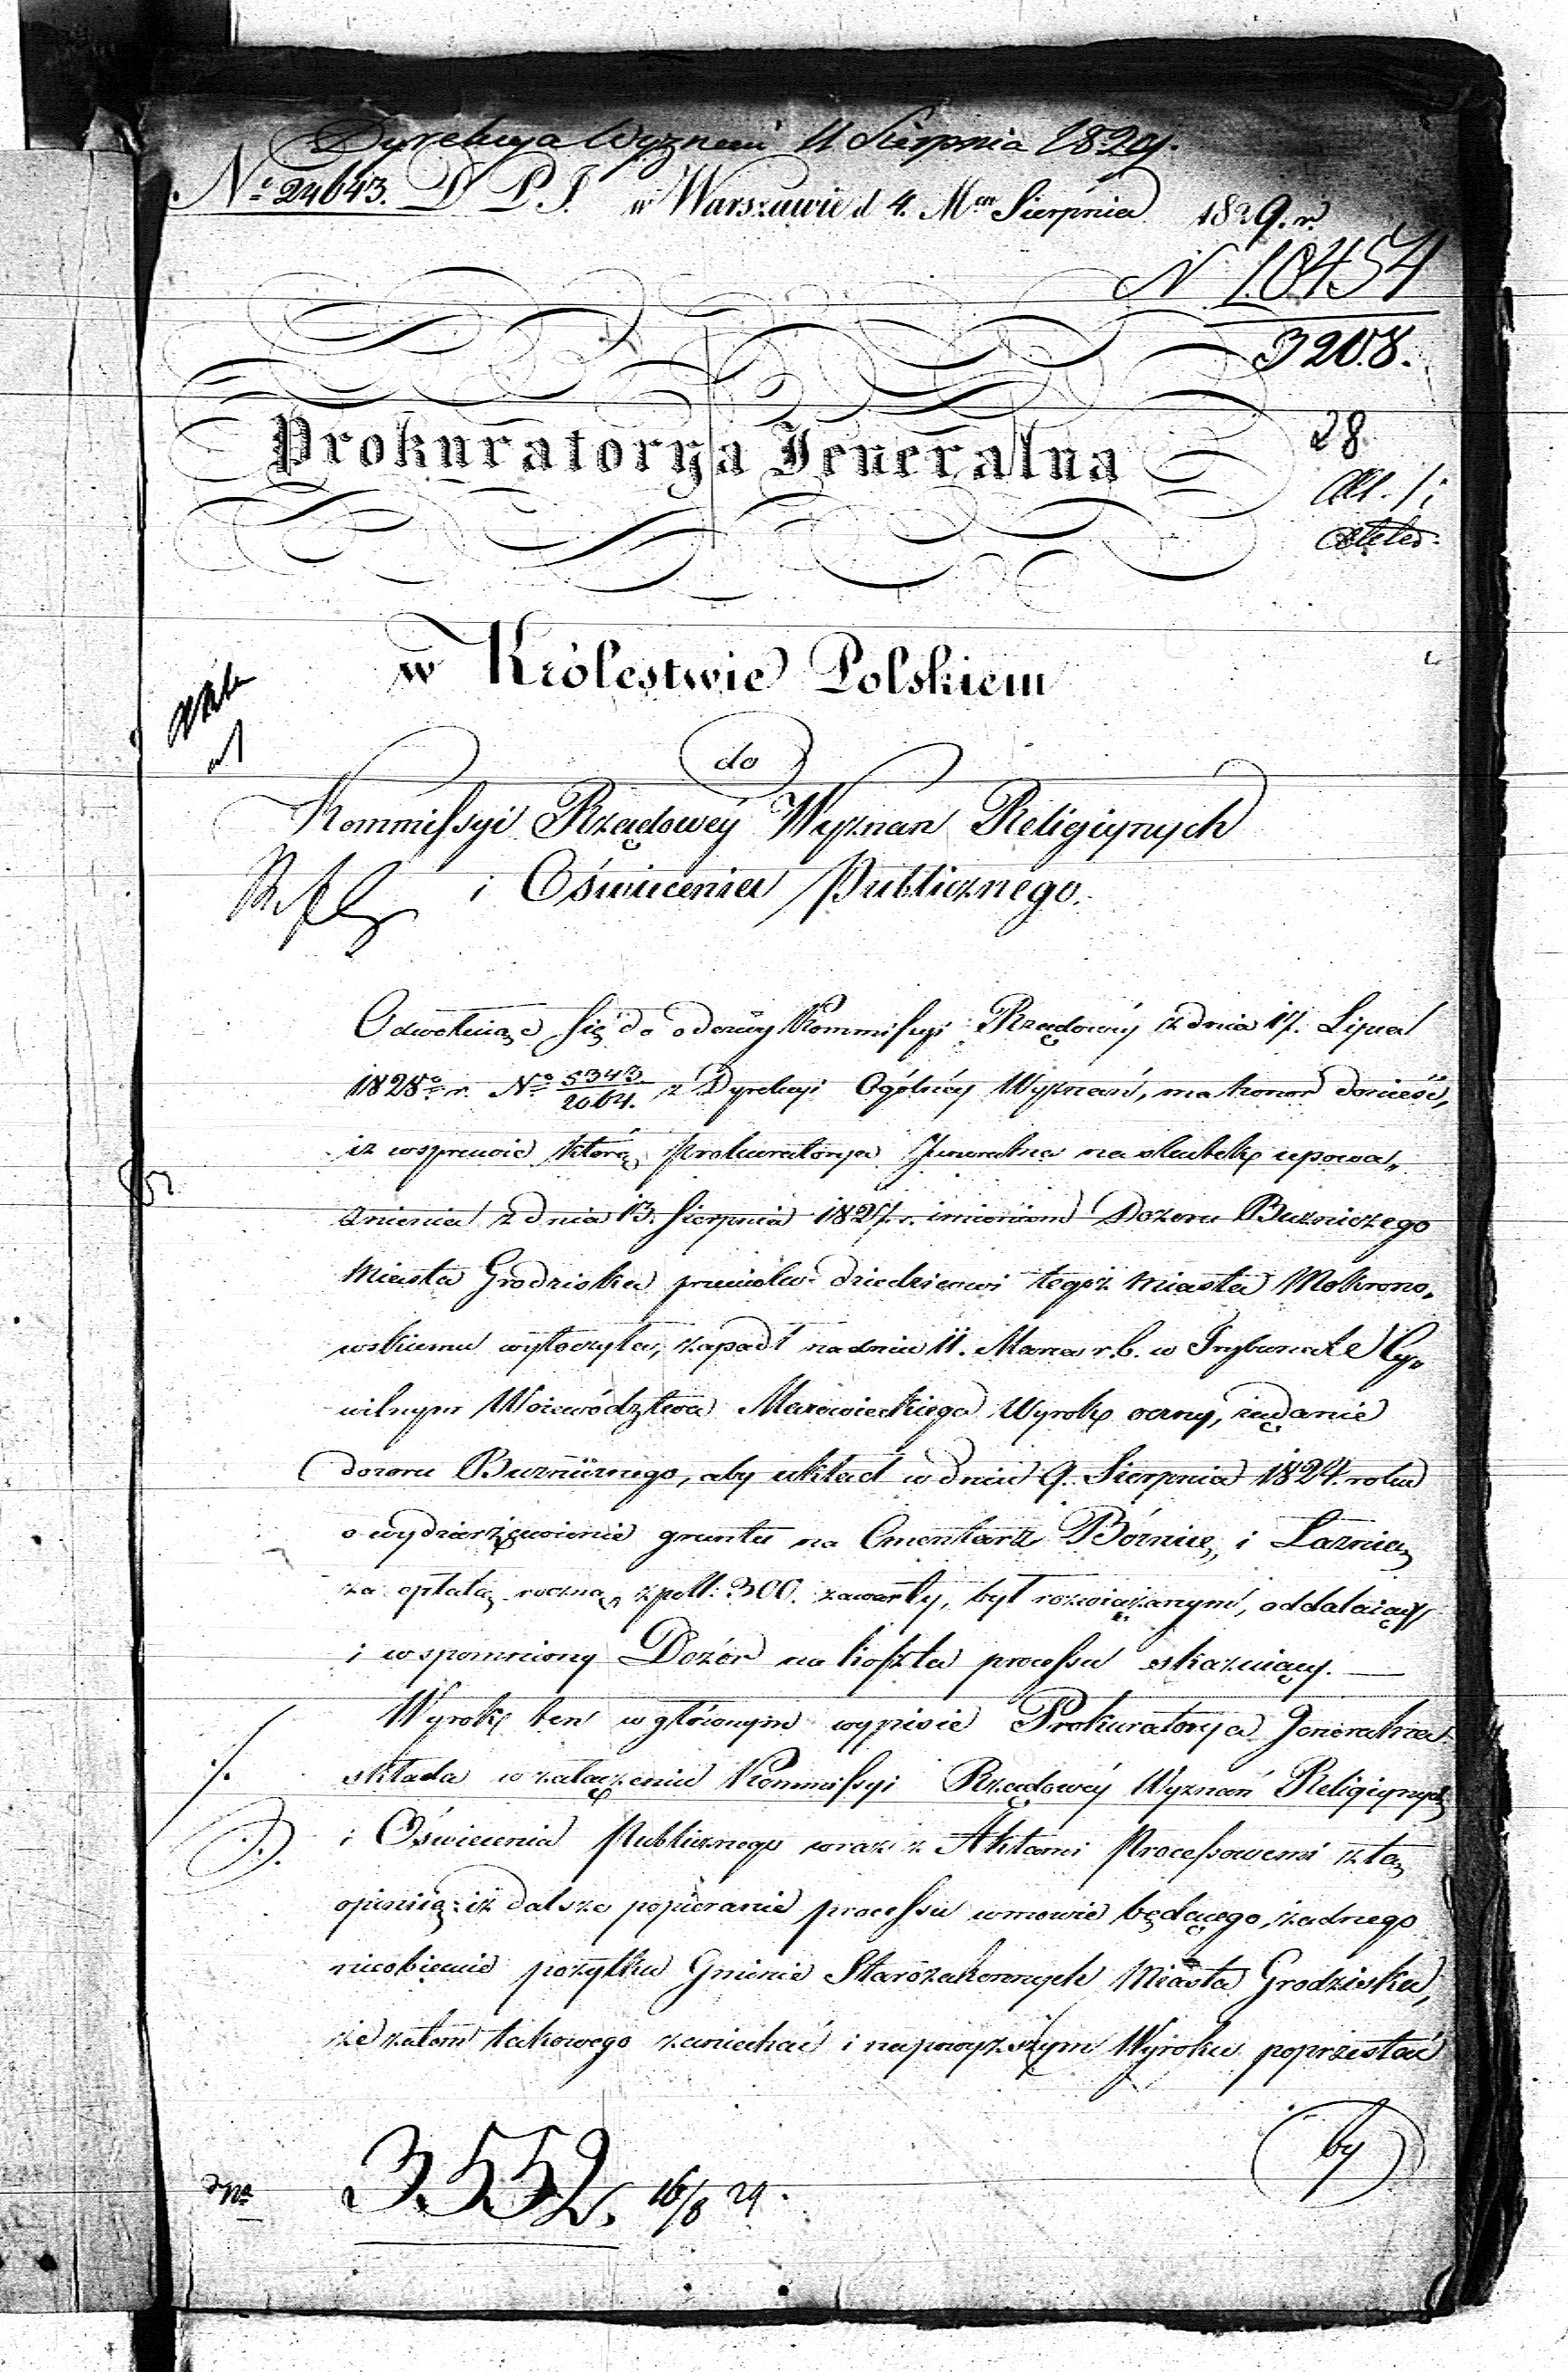 Dyrekcya Wyznań 11 Sierpnia 1829.
No 24643. D P. J. w Warszawie d 4. Mca Sierpnia 1829. r.
N 10454
3208.
Prokuratorya Jeneralna
28
w Królestwie Polskiem
do
Kommissyi Rządowéy Wyznań Religiynych
i Oświecenia Publicznego.
Odwołuiąc się do odezwy Kommissyi Rządowéy z dnia 17. Lipca
1828o r. No 5343/2064. z Dyrekcyi Ogólnéy Wyznań, ma honor donieść,
iż w sprawie którą Prokuratorya Jeneralna na skutek upowa„
żnienia z dnia 13. Sierpnia 1827. r. imieniem Dozoru Bużniczego
Miasta Grodziska przeciwko dziedzicowi tegoż Miasta Mokrono„
wskiemu wytoczyła, zapadł na dniu 11. Marca r. b. w Trybunale Cy„
wilnym Woiewództwa Mazowieckiego Wyrok oczny, żądanie
dozoru Bużniczego, aby układ w dniu 9. Sierpnia 1824. roku
o wydzierżawienie gruntu na Cmentarz Bóżnicę, i Łaznią
za opłatą roczną złpoll: 300. zawarty, był rozwiązanym, oddalaiący
i wspomniony Dozór na koszta processu skazuiący. —
Wyrok ten w głównym wypisie Prokuratorya Jeneralna
składa w załączeniu Kommissyi Rządowéy Wyznań Religiynych
i Oświecenia Publicznego wraz z Aktami Processowemi z tą
opinią: iż dalsze popieranie processu w mowie będącego, żadnego
nieobiecuie pożytku Gminie Starozakonnych Miasta Grodziska,
że zatem takowego zaniechać i na powyższym Wyroku poprzestać
by
3552. 16/8 29.